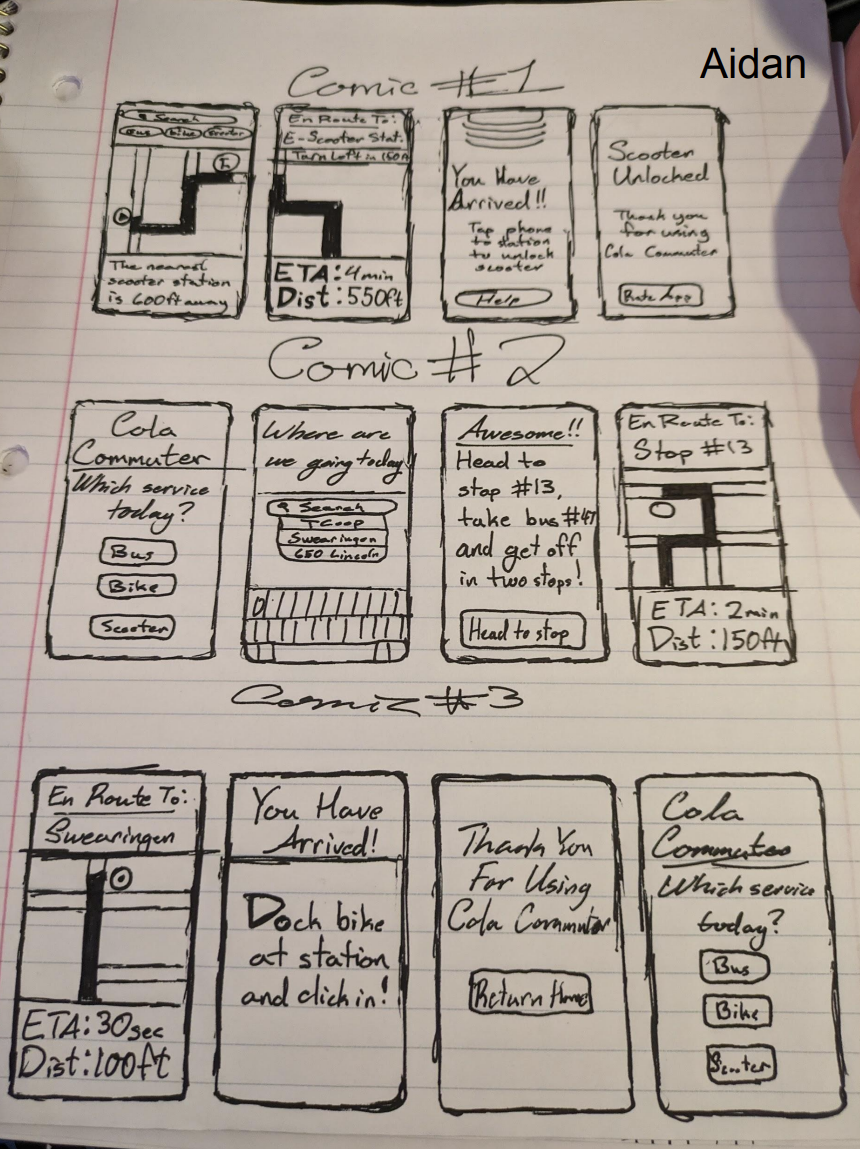 Aidan
Comic #1
Search
Bus bike scooter
The nearest
scooter station
is 600ft away
En Route To:
E-Scooter Stat.
Turn Left in 150ft
ETA: 4min
Dist: 550ft
You Have
Arrived!!
Tap phone
to station
to unlock
scooter
Help
Scooter
Unlocked
Thank you
for using
Cola Commuter
Rate App
Comic #2
Cola
Commuter
Which service
today?
Bus
Bike
Scooter
Where are
we going today
Search
TCoop
Swearingen
650 Lincoln
Awesome!!
Head to
stop #13,
take bus #47
and get off
in two stops!
Head to stop
En Route To:
Stop #13
ETA: 2min
Dist: 150ft
Comic #3
En Route To:
Swearingen
ETA: 30sec
Dist: 100ft
You Have
Arrived!
Dock bike
at station
and click in!
Thank You
For Using
Cola Commuter
Return Home
Cola
Commuter
Which service
today?
Bus
Bike
Scooter